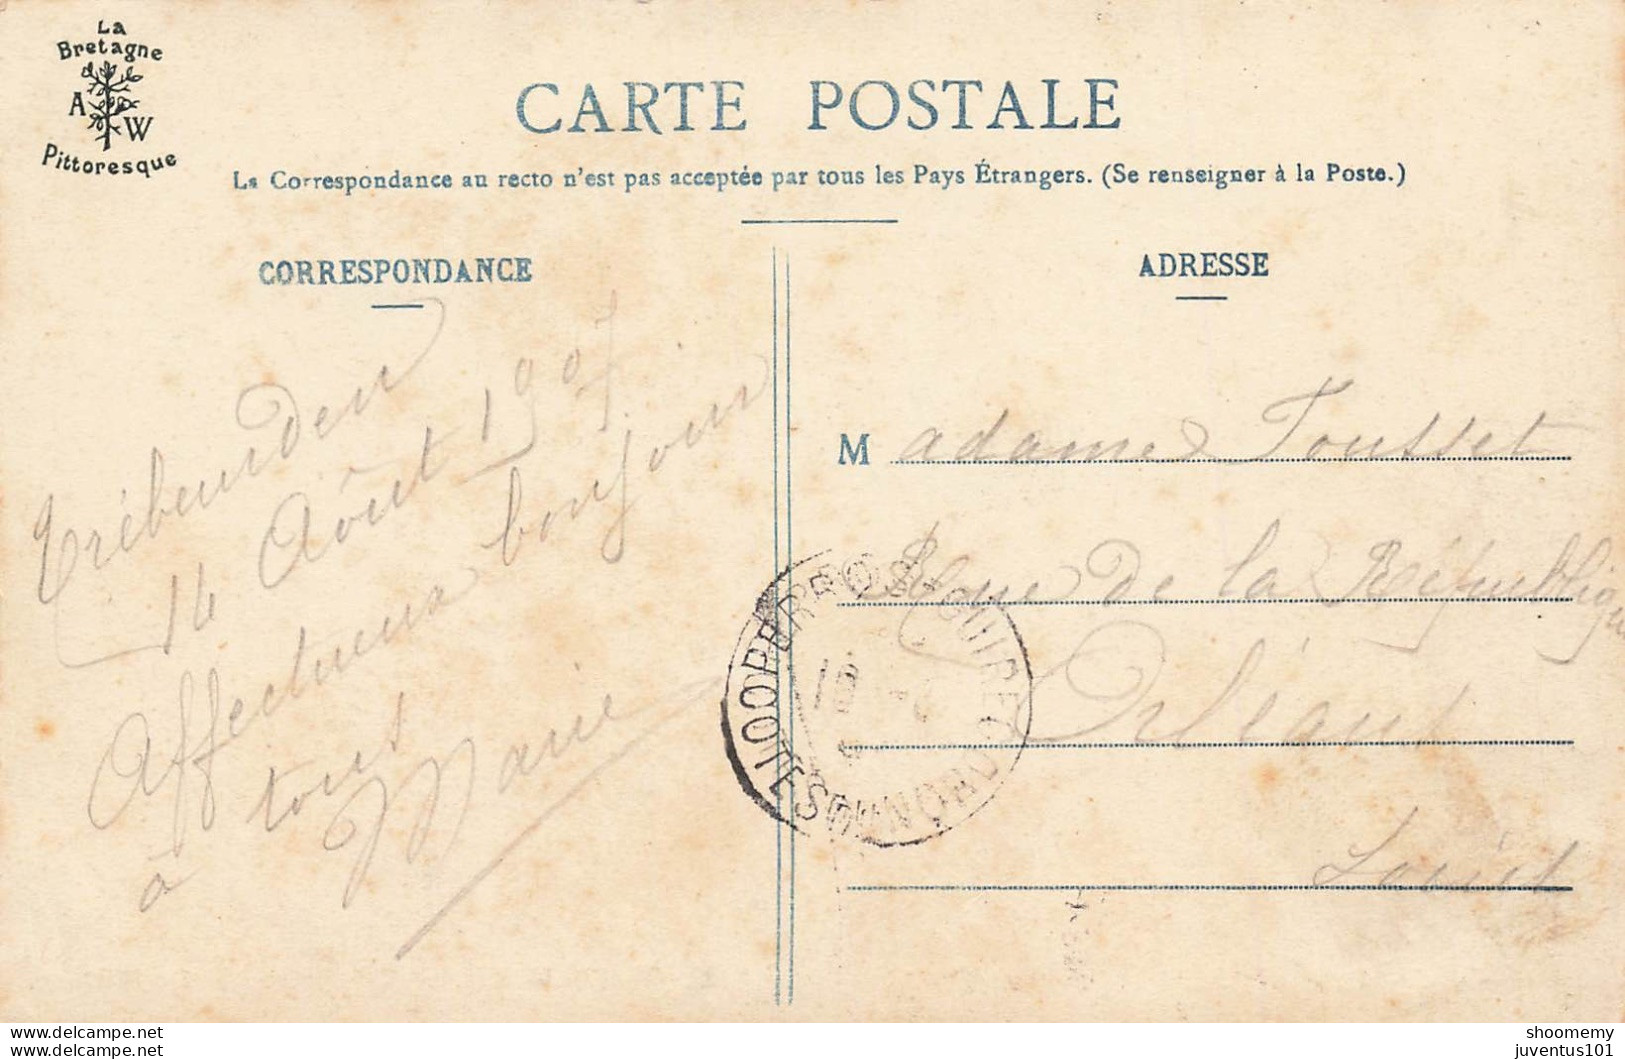 La
Bretagne
A W
Pittoresque
CARTE POSTALE
La Correspondance au recto n'est pas acceptée par tous les Pays Étrangers. (Se renseigner à la Poste.)
CORRESPONDANCE
ADRESSE
Trébeurden
14 Août 1907
Affectueux bonjour
à tous
Marie
Madame Tousset
Rue de la République
Orléans
Loiret
PERROS-GUIREC
CÔTES-DU-NORD
www.delcampe.net
juventus101
shoomemy
juventus101